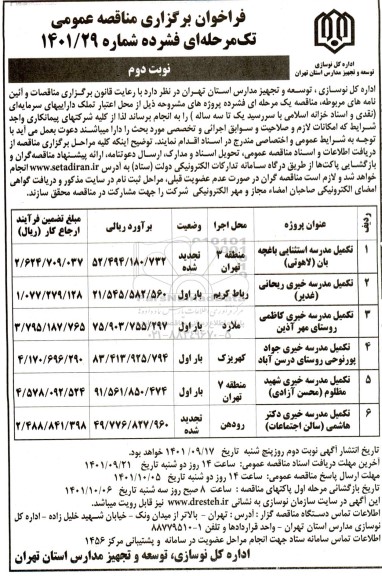 فراخوان برگزاری مناقصه عمومی
تک‌مرحله‌ای فشرده شماره ۱۴۰۱/۲۹
نوبت دوم
اداره کل نوسازی
توسعه و تجهیز مدارس استان تهران
اداره کل نوسازی ، توسعه و تجهیز مدارس استان تهران در نظر دارد با رعایت قانون برگزاری مناقصات و آئین
نامه های مربوطه، مناقصه یک مرحله ای فشرده پروژه های مشروحه ذیل از محل اعتبار تملک داراییهای سرمایه‌ای
(نقدی و اسناد خزانه اسلامی با سررسید یک تا سه ساله ) را به انجام برساند لذا از کلیه شرکتهای پیمانکاری واجد
شرایط که امکانات لازم و صلاحیت و سوابق اجرائی و تخصصی مورد بحث را دارا میباشند دعوت بعمل می آید با
توجه به شرایط عمومی و اختصاصی مندرج در اسناد اقدام نمایند. توضیح اینکه کلیه مراحل برگزاری مناقصه از
دریافت اطلاعات و اسناد مناقصه عمومی، تحویل اسناد و مدارک، ارسال دعوتنامه، ارائه پیشنهاد مناقصه‌گران و
بازگشایی پاکت‌ها از طریق درگاه سامانه تدارکات الکترونیکی دولت (ستاد) به آدرس www.setadiran.ir انجام
خواهد شد و لازم است مناقصه گران در صورت عدم عضویت قبلی، مراحل ثبت نام در سایت مذکور و دریافت گواهی
امضای الکترونیکی صاحبان امضاء مجاز و مهر الکترونیکی شرکت را جهت مشارکت در مناقصه محقق سازند.
ردیف عنوان پروژه محل اجرا وضعیت برآورد ریالی مبلغ تضمین فرآیند ارجاع کار (ریال)
۱ تکمیل مدرسه استثنایی باغچه بان (لاهوتی) منطقه ۳ تهران تجدید شده ۵۲/۴۹۴/۱۸۰/۷۳۲ ۲/۶۲۴/۷۰۹/۰۳۷
۲ تکمیل مدرسه خیری ریحانی (غدیر) رباط کریم بار اول ۲۱/۵۴۵/۵۸۲/۵۶۰ ۱/۰۷۷/۲۷۹/۱۲۸
۳ تکمیل مدرسه خیری کاظمی روستای مهر آذین ملارد بار اول ۷۵/۹۰۳/۷۵۵/۲۹۷ ۳/۷۹۵/۱۸۷/۷۶۵
۴ تکمیل مدرسه خیری جواد پورنوحی روستای درسن آباد کهریزک بار اول ۸۳/۴۱۳/۹۲۵/۷۹۴ ۴/۱۷۰/۶۹۶/۲۹۰
۵ تکمیل مدرسه خیری شهید مظلوم (محسن آزادی) منطقه ۷ تهران بار اول ۹۱/۵۶۱/۸۵۰/۴۷۴ ۴/۵۷۸/۰۹۲/۵۲۴
۶ تکمیل مدرسه خیری دکتر هاشمی (سالن اجتماعات) رودهن تجدید شده ۴۹/۷۷۶/۸۲۷/۹۶۰ ۲/۴۸۸/۸۴۱/۳۹۸
تاریخ انتشار آگهی نوبت دوم روزپنج شنبه تاریخ ۱۴۰۱/۰۹/۱۷ خواهد بود.
آخرین مهلت دریافت اسناد مناقصه عمومی: ساعت ۱۴ روز دو شنبه تاریخ ۱۴۰۱/۰۹/۲۱
مهلت ارسال پاسخ مناقصه عمومی: ساعت ۱۴ روز دو شنبه تاریخ ۱۴۰۱/۱۰/۰۵
تاریخ بازگشائی مرحله اول پاکتهای مناقصه : ساعت ۸ صبح روز سه شنبه تاریخ ۱۴۰۱/۱۰/۰۶
این آگهی در سایت سازمان نوسازی به نشانی www.dresteh.ir نیز قابل رویت میباشد.
اطلاعات تماس دستگاه مناقصه گزار: آدرس : تهران - بالاتر از میدان ونک - خیابان شهید خلیل زاده - اداره کل
نوسازی مدارس استان تهران - واحد قراردادها و تلفن ۱-۸۸۷۷۹۵۱۰
اطلاعات تماس سامانه ستاد جهت انجام مراحل عضویت در سامانه و پشتیبانی مرکز ۱۴۵۶
اداره کل نوسازی، توسعه و تجهیز مدارس استان تهران